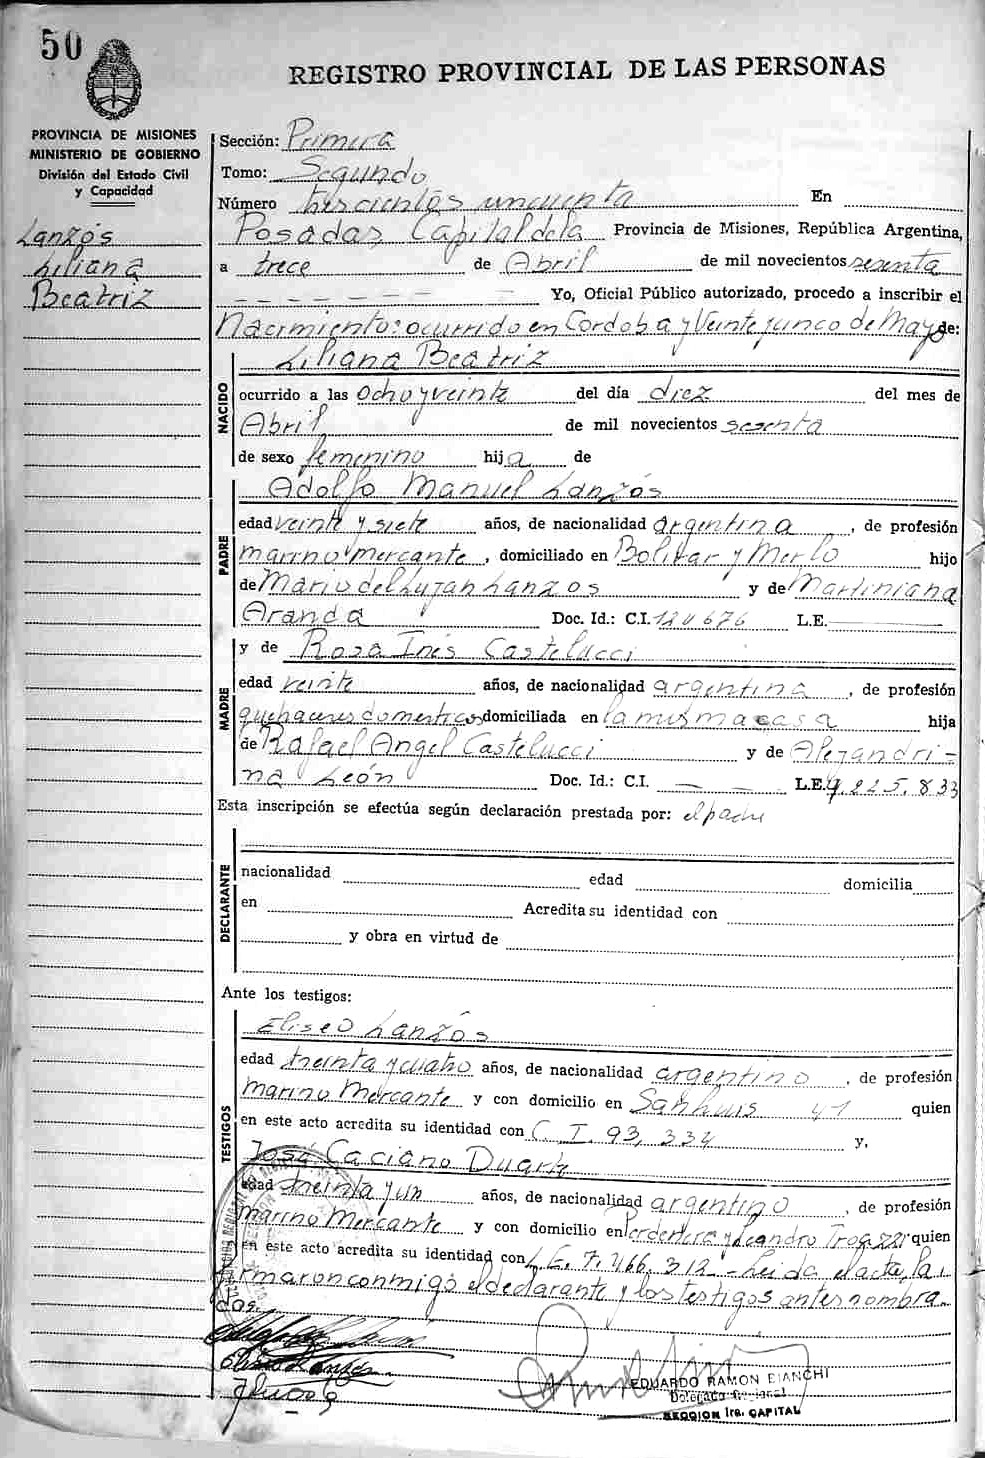 50
REGISTRO PROVINCIAL DE LAS PERSONAS
PROVINCIA DE MISIONES
MINISTERIO DE GOBIERNO
División del Estado Civil
y Capacidad
Lanzós
Liliana
Beatriz
Sección: Primera
Tomo: Segundo
Número trescientos cincuenta En
Posadas Capital de la Provincia de Misiones, República Argentina,
a trece de Abril de mil novecientos sesenta
Yo, Oficial Público autorizado, procedo a inscribir el
Nacimiento: ocurrido en Córdoba y Veinte y cinco de Mayo de:
NACIDO
Liliana Beatriz
ocurrido a las ocho y veinte del día diez del mes de
Abril de mil novecientos sesenta
de sexo femenino hija de
PADRE
Adolfo Manuel Lanzós
edad veinte y siete años, de nacionalidad argentina, de profesión
marino mercante, domiciliado en Bolívar y Merlo hijo
de Mario del Luján Lanzos y de Martiniana
Aranda Doc. Id.: C.I. L.E.
MADRE
y de Rosa Inés Castelucci
edad veinte años, de nacionalidad argentina, de profesión
quehaceres domesticos domiciliada en la misma casa hija
de Rafael Angel Castelucci y de Alejandri-
na León Doc. Id.: C.I. - - - L.E. 4.225.833
Esta inscripción se efectúa según declaración prestada por: el padre
DECLARANTE
nacionalidad edad domicilia
en Acredita su identidad con
y obra en virtud de
Ante los testigos:
TESTIGOS
Eliseo Lanzós
edad treinta y cuatro años, de nacionalidad argentino, de profesión
marino Mercante y con domicilio en San Luis 41 quien
en este acto acredita su identidad con C. I. 93,334 y,
José Caciano Duarte
edad treinta y un años, de nacionalidad argentino, de profesión
marino Mercante y con domicilio en y Leandro quien
en este acto acredita su identidad con L. E. 7.466.312 - Leida el acta, la
firmaron conmigo el declarante y los testigos antes nombra-
dos.
EDUARDO RAMON BIANCHI
Delegado Regional
SECCION 1ra. CAPITAL